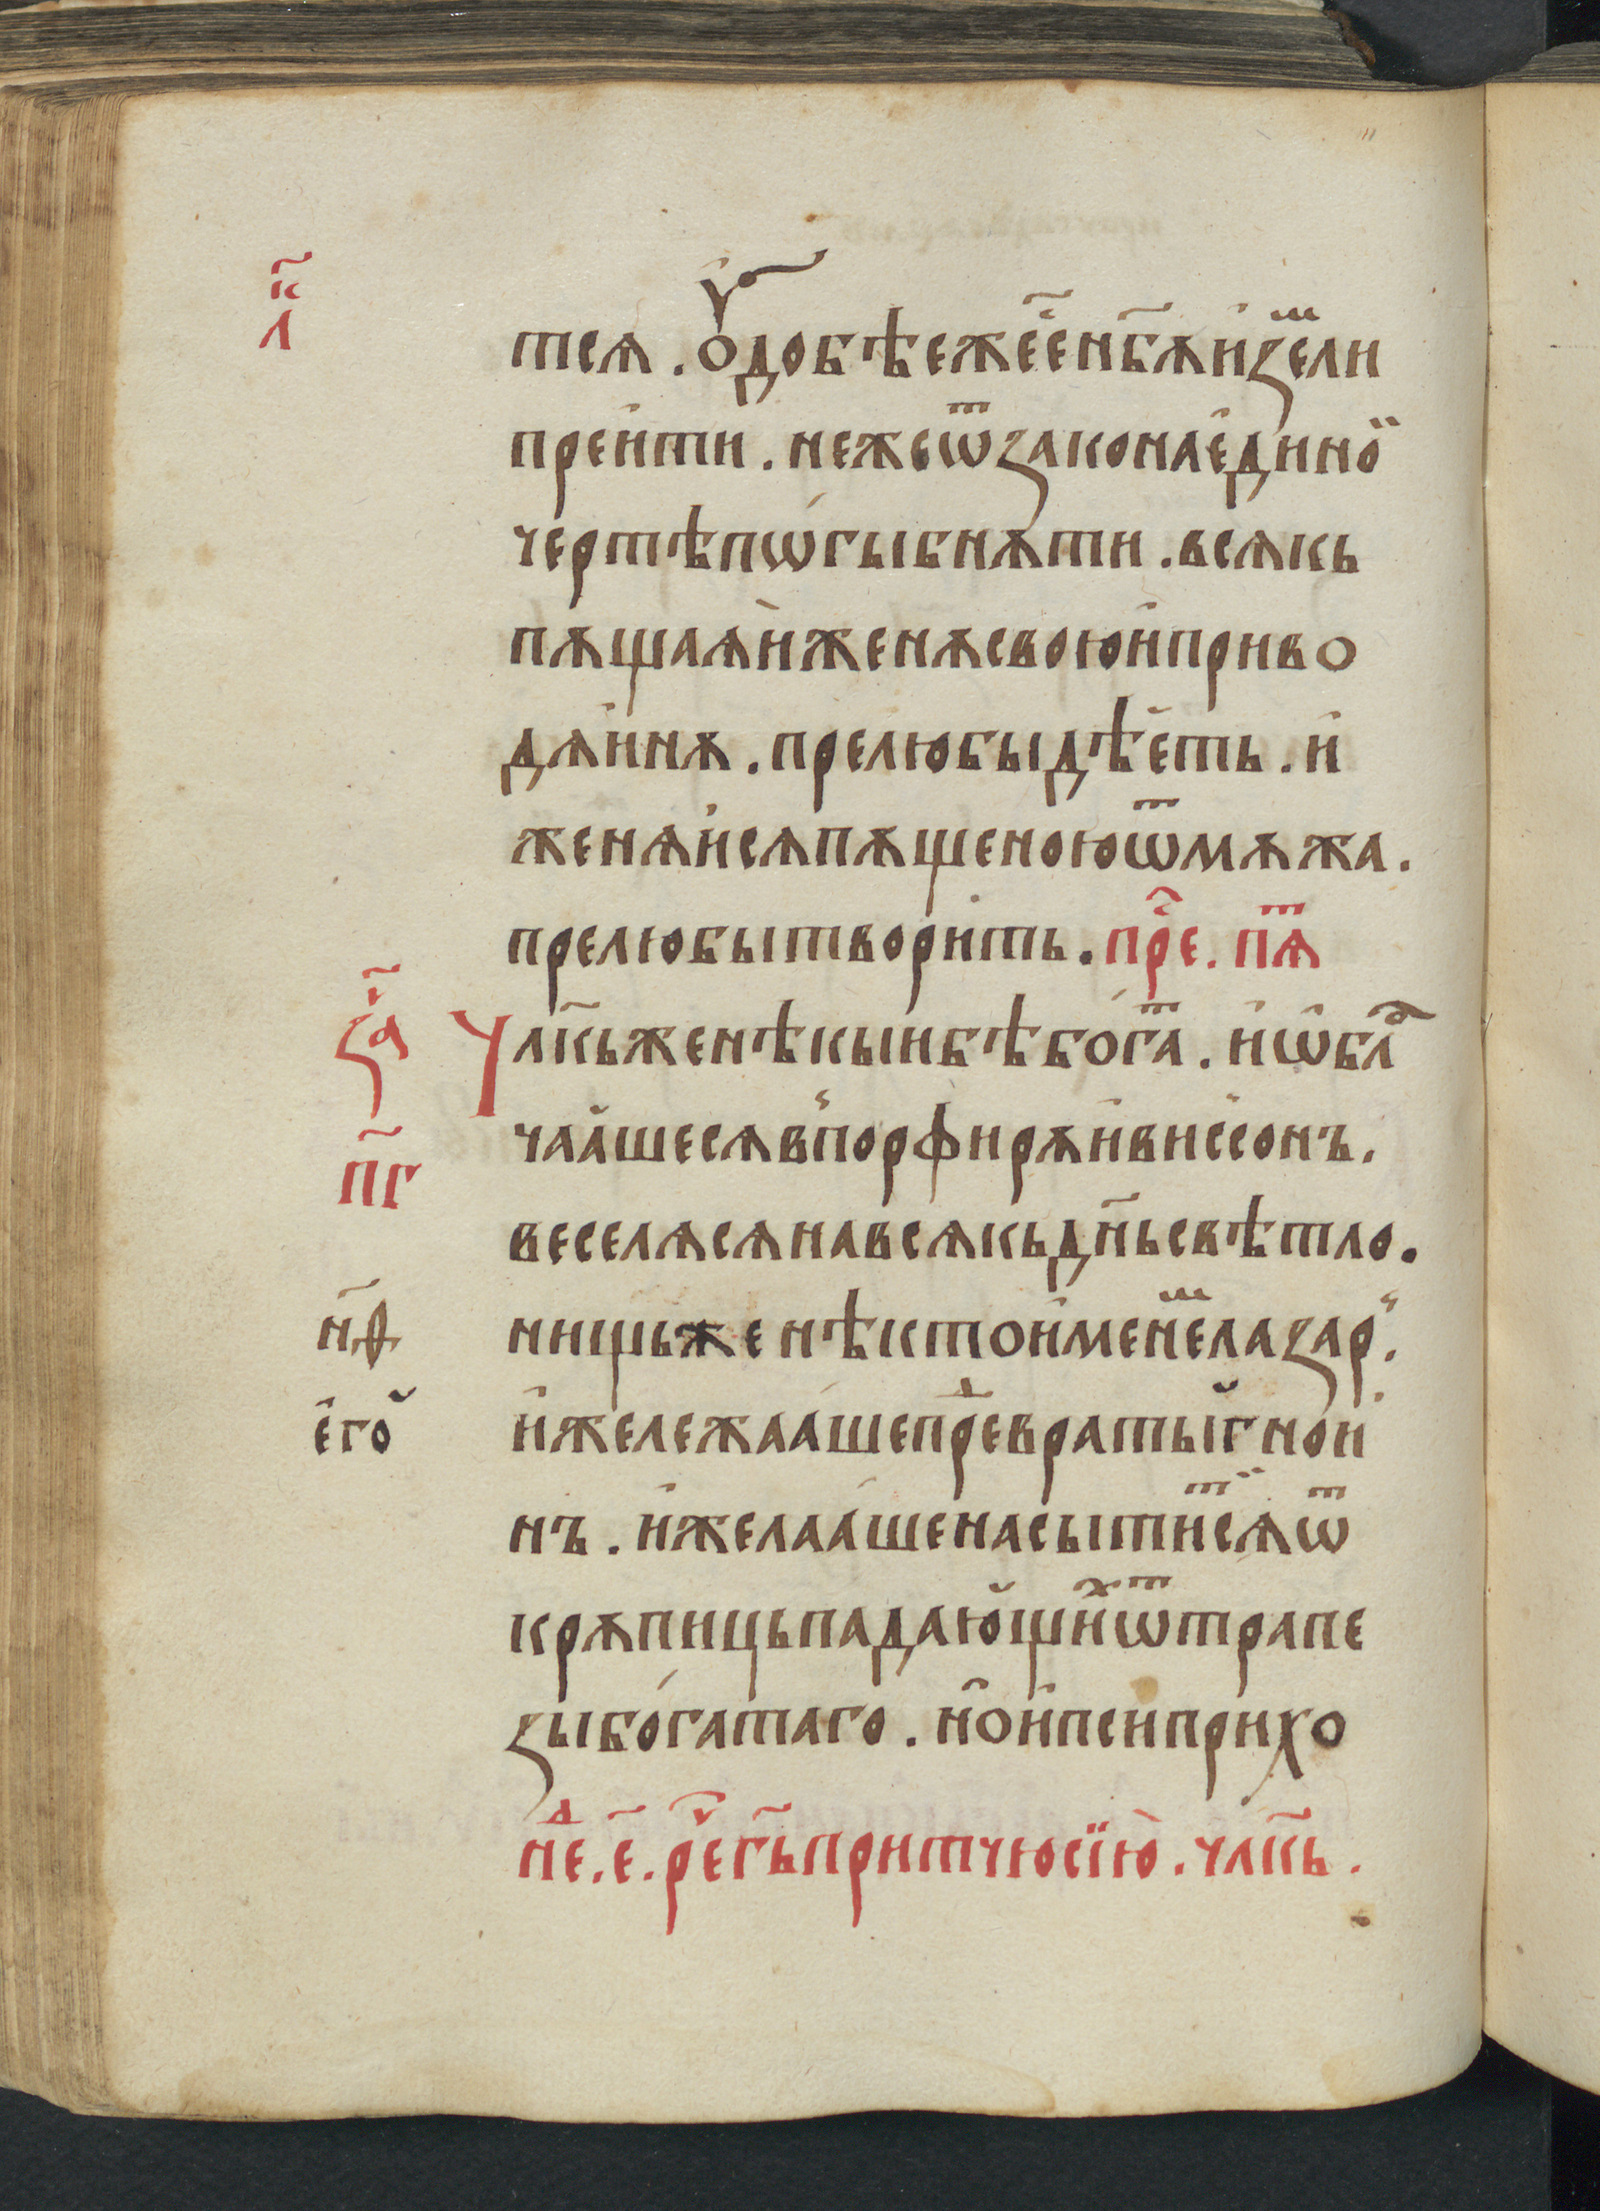 к҃
л
тсѧ. ѹ҆добѣе же е҆́ н҃бѫ и҆ зем̾ли
преи҆ти. неже ѿ закона е҆диноӥ
чертѣ пѡгыбнѫти. всѧкь
пѫщаѫ̀и женѫ своюи҆ приво
дѧи҆ инѫ. прелюбы дѣе҆ть. и҆
женѧи҆сѧ пѫщеною ѿ мѫжа.
прелюбы творить. пре. пѧ
Чл҃кь же нѣкыи бѣ бог҃а. и҆ ѡ҆бла
за҃
чаа҆ше сѧ в порфирѫ и҆ виссонъ.
пг҃
веселѧсѧ на всѧкь дн҃ь свѣтло.
нищь же нѣкто и҆мене лазар.
нд҃
и҆же лежаа҆ше пре враты е҆г гнои
е҆го
нъ. и҆ желаа҆ше насытисѧ ѿ
крѫпиць падаю҆щи ѿ трапе
зы бо́гатаго. но и҆ пси прихо
не. е҃. рече г҃ь притчю сїю̀. чл҃кь.